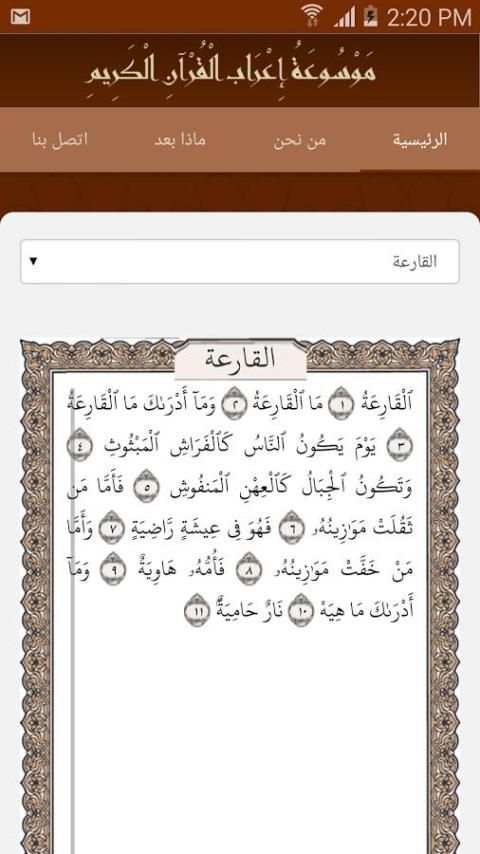 2:20 PM
مَوْسُوعَةُ إِعْرَابِ الْقُرْآنِ الْكَرِيمِ
الرئيسية من نحن ماذا بعد اتصل بنا
القارعة
القارعة
ٱلْقَارِعَةُ ١ مَا ٱلْقَارِعَةُ ٢ وَمَآ أَدْرَىٰكَ مَا ٱلْقَارِعَةُ
٣ يَوْمَ يَكُونُ ٱلنَّاسُ كَٱلْفَرَاشِ ٱلْمَبْثُوثِ ٤
وَتَكُونُ ٱلْجِبَالُ كَٱلْعِهْنِ ٱلْمَنفُوشِ ٥ فَأَمَّا مَن
ثَقُلَتْ مَوَٰزِينُهُۥ ٦ فَهُوَ فِى عِيشَةٍ رَّاضِيَةٍ ٧ وَأَمَّا
مَنْ خَفَّتْ مَوَٰزِينُهُۥ ٨ فَأُمُّهُۥ هَاوِيَةٌ ٩ وَمَآ
أَدْرَىٰكَ مَا هِيَهْ ١٠ نَارٌ حَامِيَةٌ ١١